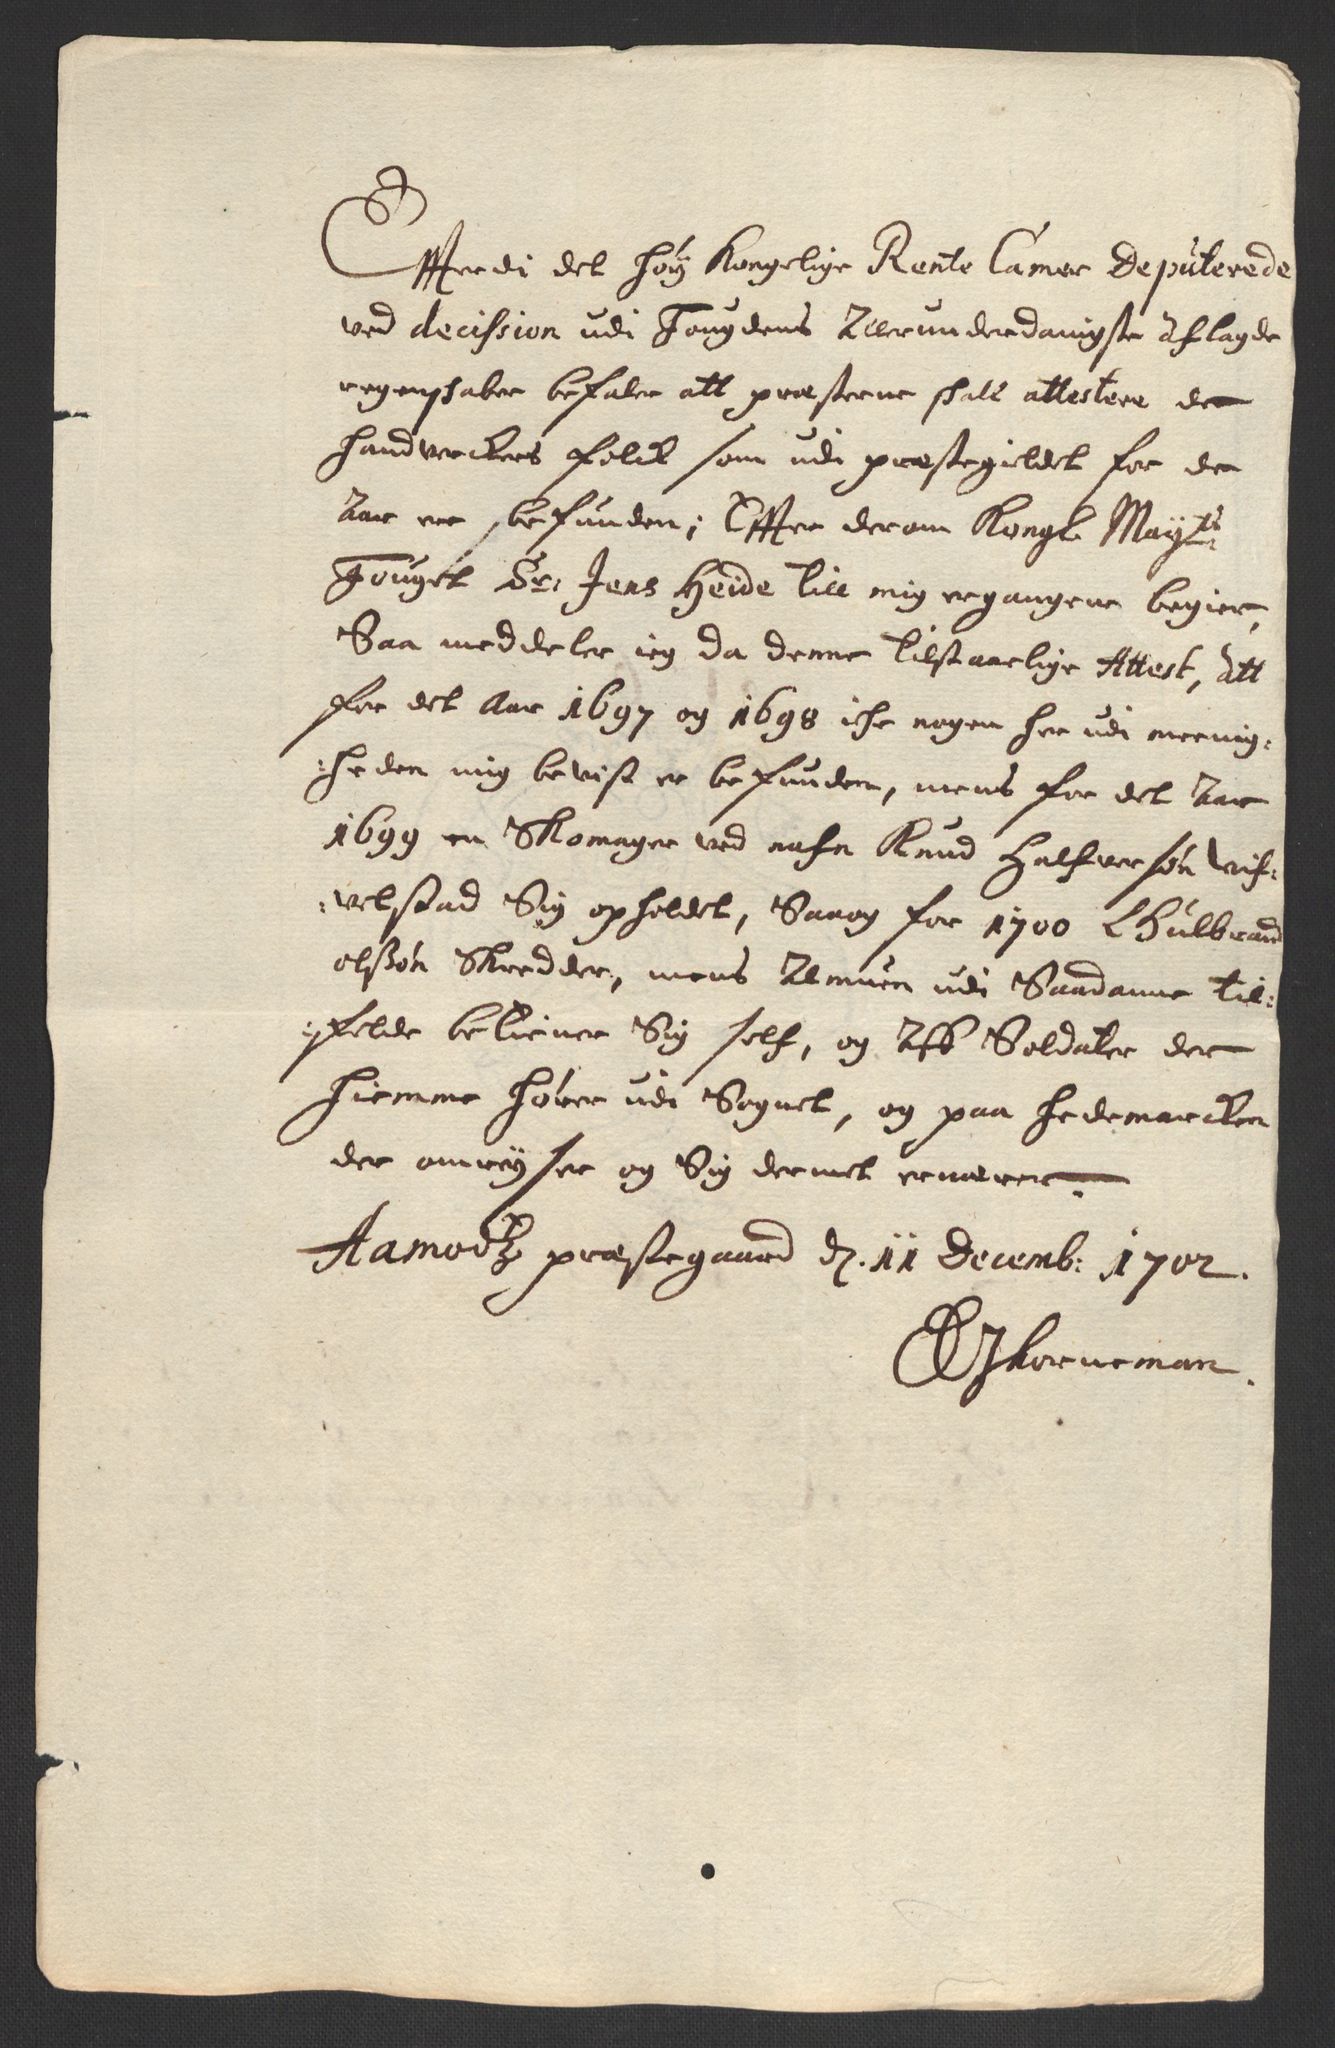 Efterdi det høy Kongelige Rente Camer Deputerede
ved decission udi Fougdens Allerunderdanigste Aflagde
regenskaber befaler att præsterne skall attestere de
handverckers folck som udi præstegieldet for de
Aar er befunden; Effter derom Kongl. Mayts
Fouget Sr. Jens Heide till mig ergangene begier,
Saa meddeler ieg da denne Tilstaaelige Attest, Att
for det Aar 1697 og 1698 iche nogen her udi meenig:
:heden mig bevist er befunden, mens for det Aar
1699 en Skomager ved nafn Knud Halfversøn
:velstad Sig opholdet, Saaog for 1700 Ghulbrand
olssøn Skredder, mens Almuen udi Saadanne til:
:felde betiener Sig self, og Aff Soldater der
hiemme hører udi Sognet, og paa hedemarcken
der omreyser og Sig dermet ernærer.
Aamodtz præstegaard d. 11 Decemb: 1702.
Korneman.